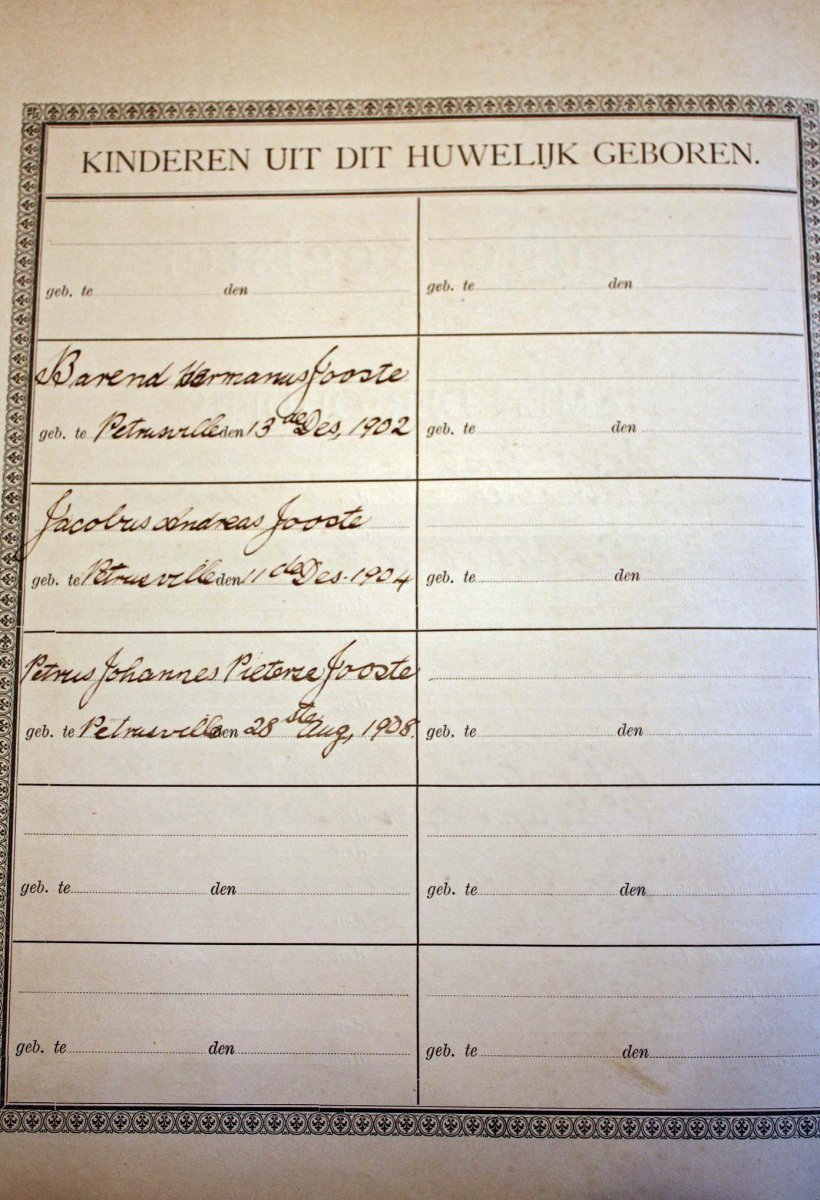 KINDEREN UIT DIT HUWELIJK GEBOREN.
geb. te den
geb. te den
Barend Hermanus Jooste
geb. te Petrusville den 13de Des, 1902
geb. te den
Jacobus Andreas Jooste
geb. te Petrusville den 11de Des. 1904
geb. te den
Petrus Johannes Pieterse Jooste
geb. te Petrusville den 28ste Aug, 1908.
geb. te den
geb. te den
geb. te den
geb. te den
geb. te den